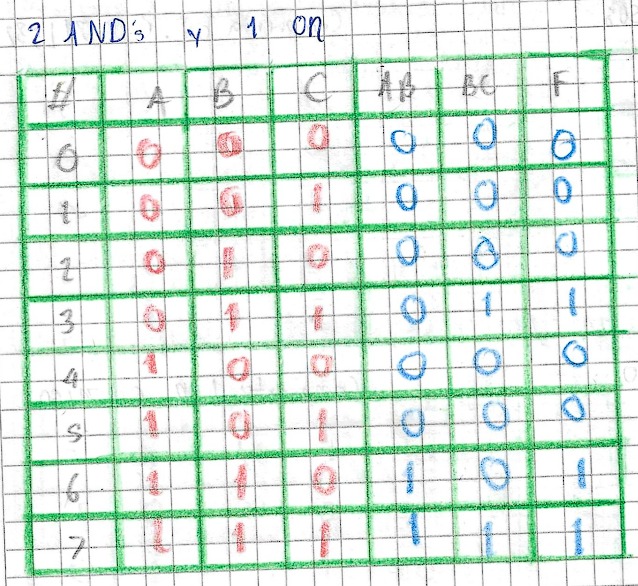 2 AND's y 1 OR
# A B C AB BC F
0 0 0 0 0 0 0
1 0 0 1 0 0 0
2 0 1 0 0 0 0
3 0 1 1 0 1 1
4 1 0 0 0 0 0
5 1 0 1 0 0 0
6 1 1 0 1 0 1
7 1 1 1 1 1 1